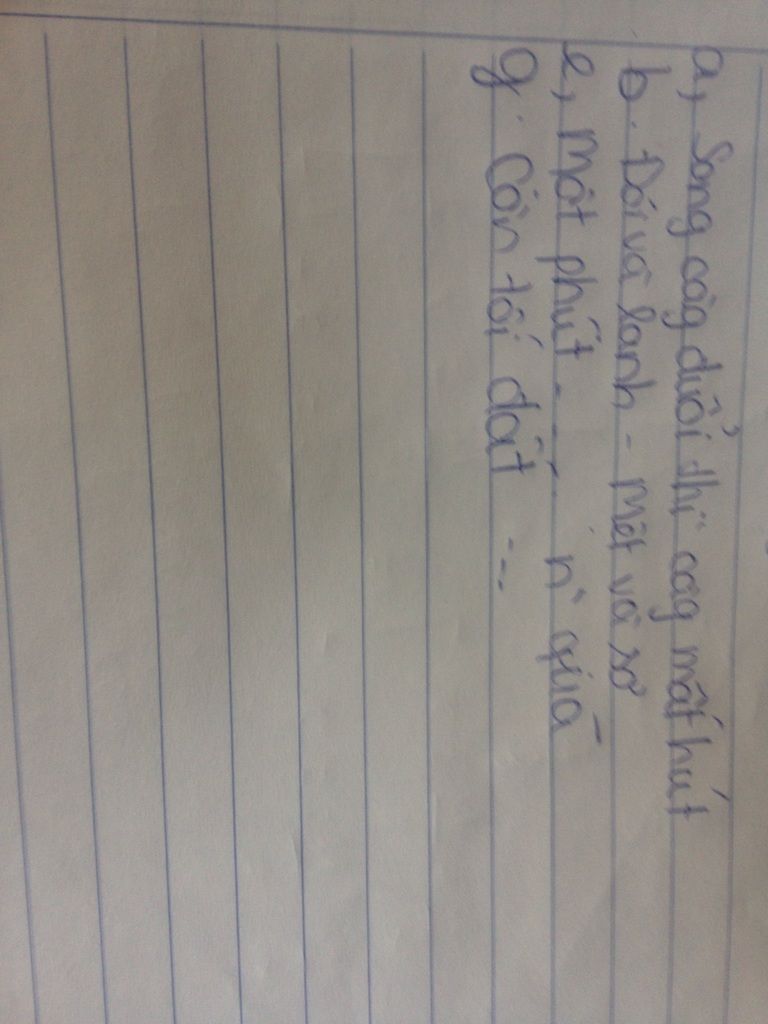 a, Song càg đuổi thì càg mất hút
b. Đói và lạnh - mệt và sợ
e, Một phút - - ... nữa
g. Còn tối đất ...